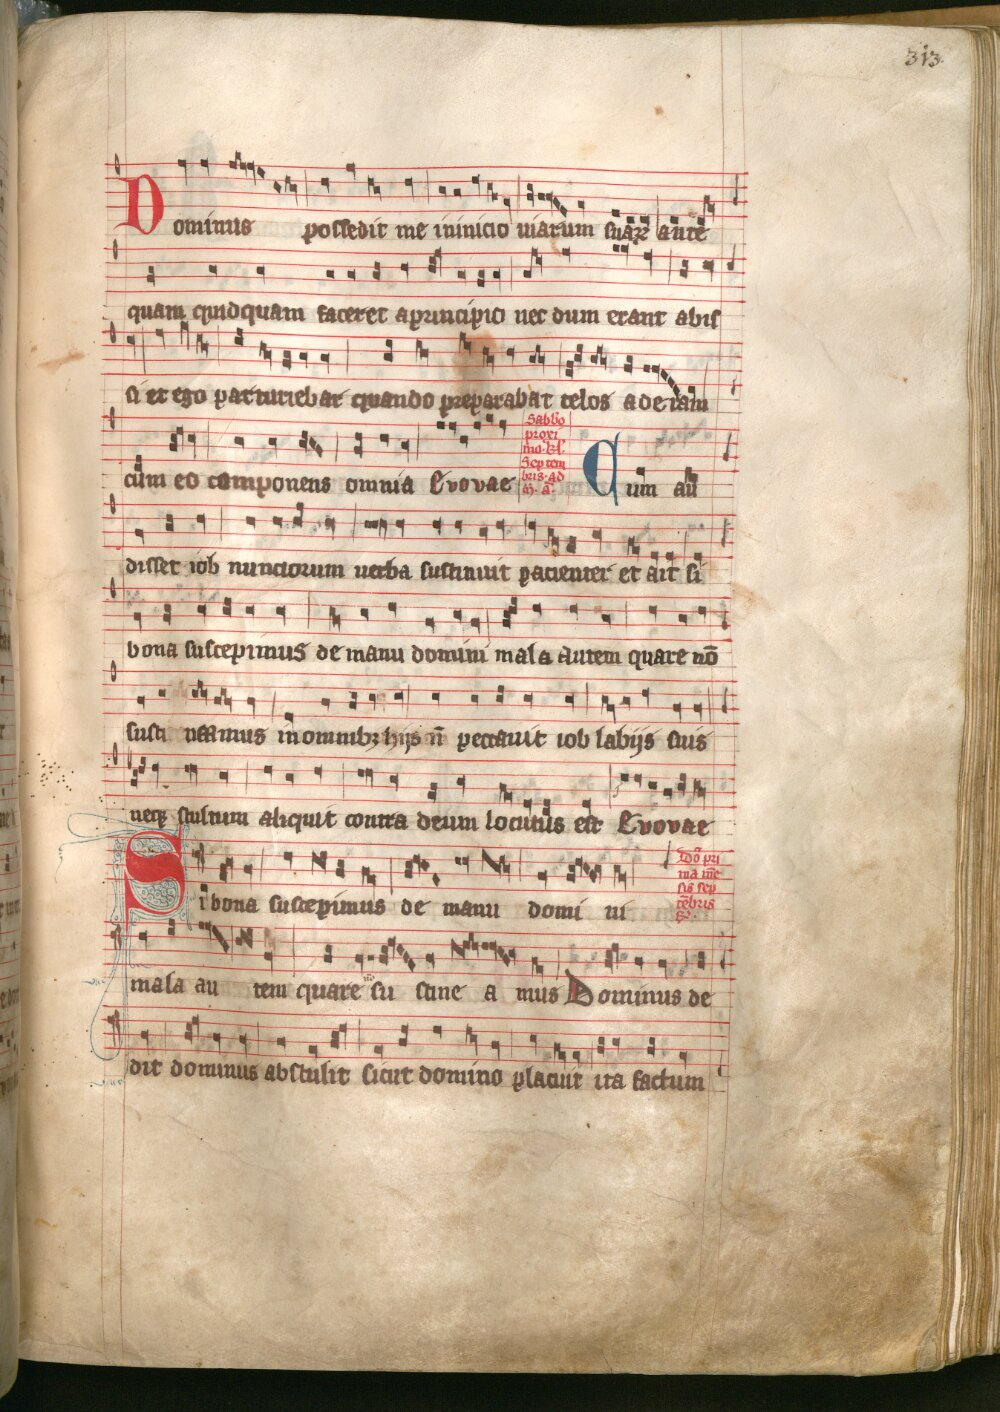 313
Dominus possedit me in inicio uiarum suarꝝ ante
quam quidquam faceret a principio nec dum erant abis
si et ego parturiebar quando preparabat celos aderam
cum eo componens omnia Evovae
Sabb̅o
proxi
mo. kl̅.
Septem
bris. ad
m̅. a̅.
Cum au
disset iob nunciorum uerba sustinuit pacienter et ait si
bona suscepimus de manu domini mala autem quare no̅
susti neamus in omnibꝫ hijs n̅ peccauit iob labijs suis
neqꝫ stultum aliquit contra deum locutus est Evovae
Si bona suscepimus de manu domi ni
pri
ma me̅
sis sep
te̅bris
mala au tem quare su stine a mus Dominus de
dit dominus abstulit sicut domino placuit ita factum